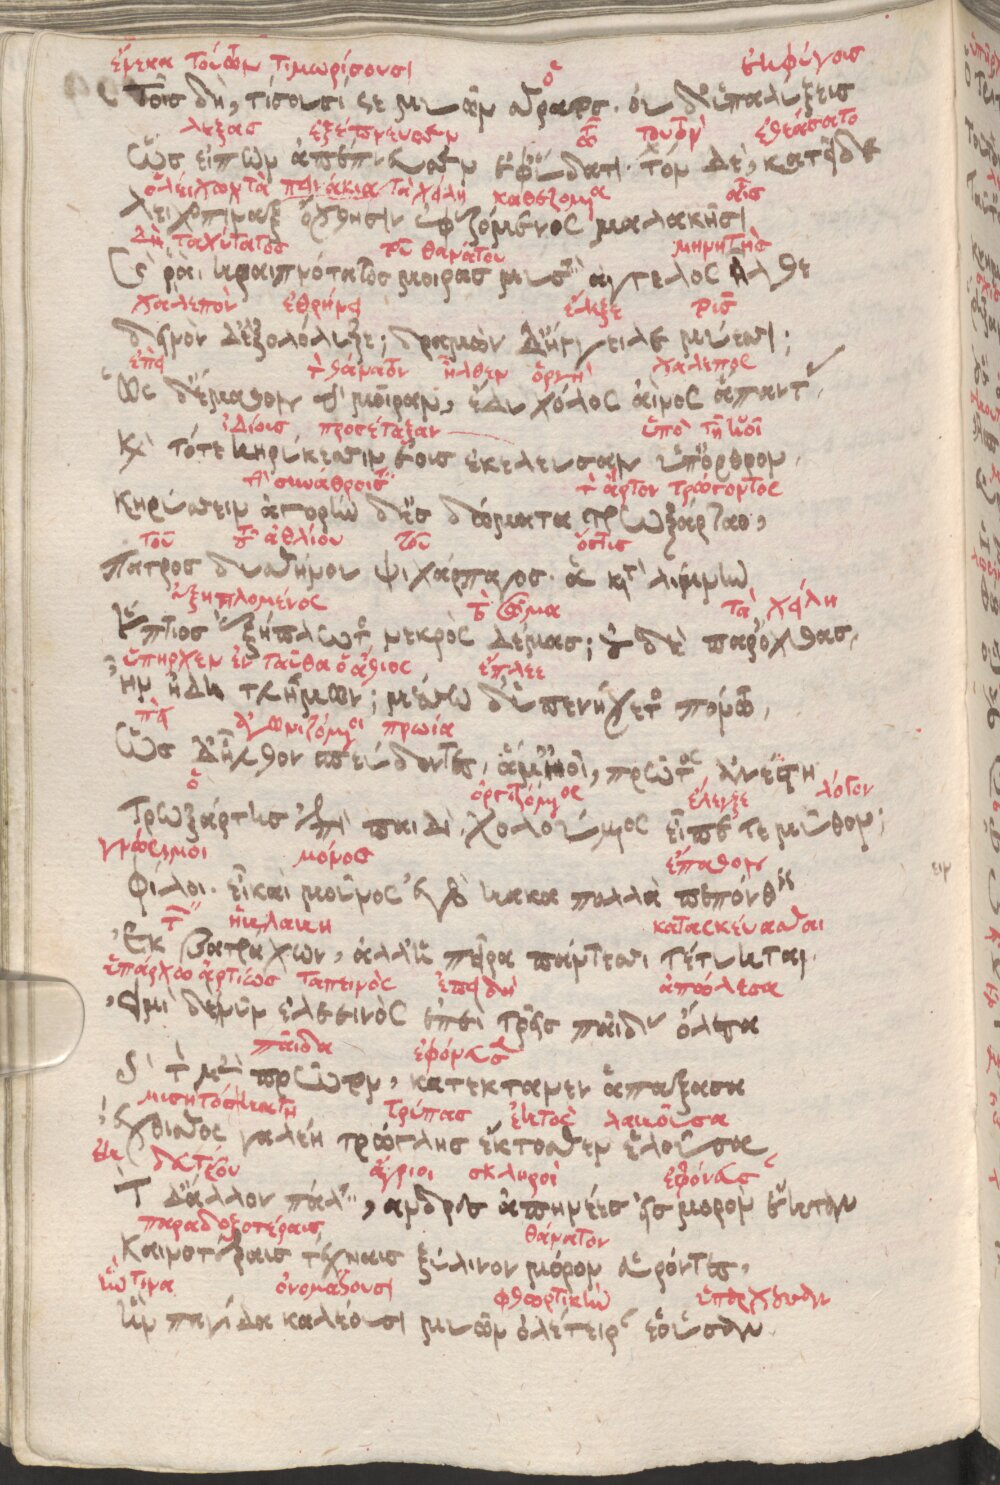 ἕνεκα τούτων τιμωρίσουσι ὁ ἐκφύγοις
τοῖς δὴ, τίσουσί σε μυῶν στρατός. οὐ δ' ὑπαλύξεις
λέξας ἐξέπνευσεν τοῦτον ἐθεάσατο
Ὣς εἰπὼν ἀπέπνευσεν ἐφ' ὕδατι. τὸν δὲ, κατεῖδε
ὁ λείχων τὰ πινάκια τὰ χείλη καθεζόμενος
λειχοπίναξ ὄχθησιν ἐφεζόμενος μαλακῇσι
δὴ ταχύτατος τοῦ θανάτου μηνυτὴς
ῥὰ κραιπνότατος μοίρας μυσὶν ἄγγελος ἦλθε
χαλεπὸν ἐθρήνει ἔλεξε
δεινὸν δ' ἐξολόλυξε; δραμὼν δ' ἤγγειλε μύεσσι;
ἐπεὶ θάνατον ἦλθεν ὀργὴ χαλεπος
Ὡς δ' ἔμαθον τὴν μοῖραν, ἔδυ χόλος αἰνὸς ἅπαντας
ἰδίοις προσέταξαν ὑπὸ τῇ ἠοῖ
Καὶ τότε κηρύκεσσιν ἑοῖς ἐκέλευσαν ὑπ' ὄρθρον
συνάθροισιν ἄρτον τρώγοντος
Κηρύσσειν ἀγορὴν δ' ἐς δώματα Τρωξάρταο,
τοῦ τοῦ ἀθλίου τοῦ ὅστις
Πατρος δυστήνου ψιχάρπαγος. ὃς κατὰ λίμνην
ἐξηπλομένος τὸ σῶμα τὰ χείλη
Ὕπτιος ἐξήπλωτο νεκρὸς δέμας; οὐδὲ παρ' ὄχθας
ὑπῆρχεν ἐν ταῦθα ὁ ἄθλιος ἔπλεε
Ἦν ἤδη τλήμων; μέσσω δ' ἐπενήχετο πόντω
ἀγωνιζόμενοι πρωία
Ὣς δ' ἦλθον σπεύδοντες, ἅμ' ἠοῖ, πρῶτος ἀνέστη
ὁ ὀργιζόμενος ἔλεξε λόγον
Τρωξάρτης ἐπὶ παιδὶ χολούμενος εἶπέ τε μῦθον;
γνώριμοι μόνος ἔπαθον
Φίλοι. εἰ καὶ μοῦνος ἐγὼ κακα πολλὰ πεπόνθειν
κατασκεύασται
Ἐκ βατράχων, ἀλλ' ἡ πεῖρα πάντεσσι τέτυκται
ὑπάρχω ἀρτίως ταπεινὸς ἐπειδὴ ἀπώλεσα
Εἰμὶ δὲ νῦν ἐλεεινὸς ἐπεὶ τρεῖς παῖδας ὄλεσα
παῖδα ἐφόνευσε
Καὶ τὸν μὲν πρῶτον, κατέκτανεν ἁπάξασα
τρύπας ἐκτὸς λαβοῦσα
Ἔχθιστος γαλέη τρώγλης ἔκτοσθεν ἑλοῦσα
δεύτερον ἄγριοι σκληροὶ ἐφόνευσαν
Τὸν δ' ἄλλον πάλιν, ἄνδρες ἀπηνέες ἐς μόρον εἷλκον
παραδοξοτέραις θάνατον
Καινοτέραις τέχναις ξύλινον μόρον εὑρόντες,
ὥ τινα ὀνομάζουσι φθαρτικὴν ὑπάρχουσαν
Ἣν παγίδα καλέουσι μυῶν ὀλέτειραν ἐοῦσαν.